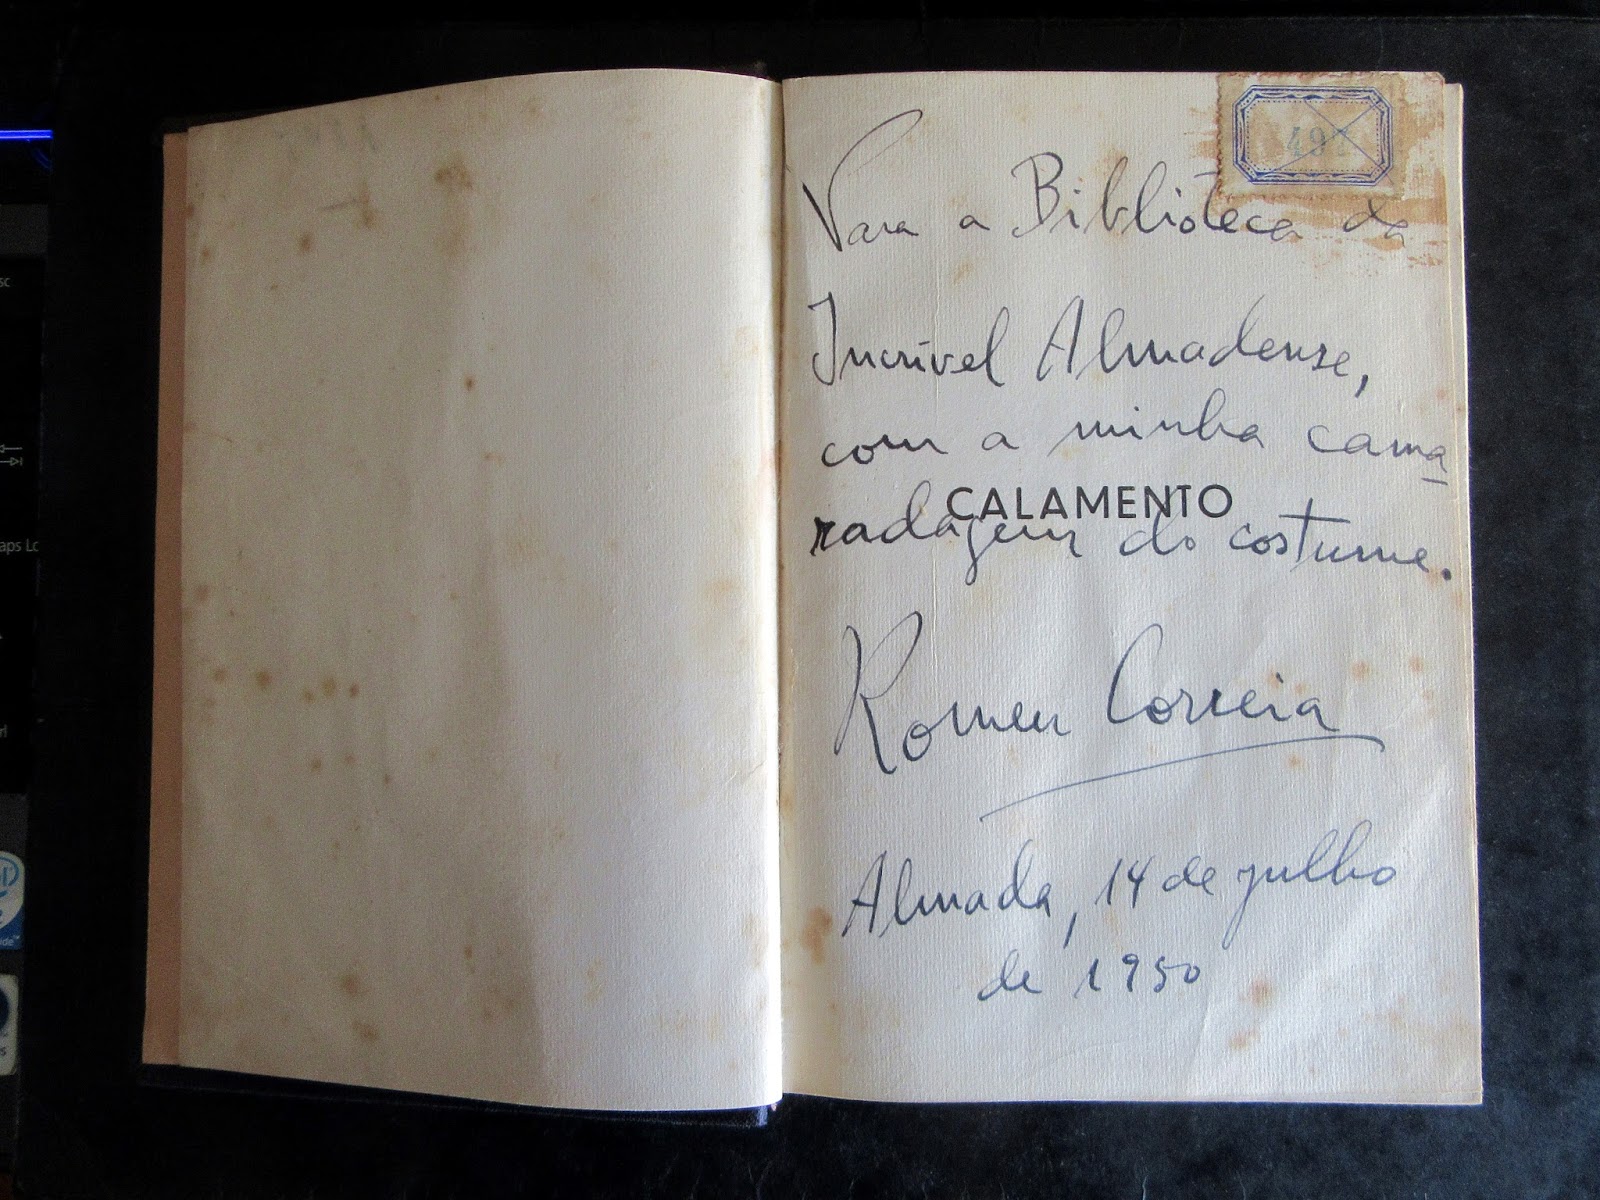 497
Para a Biblioteca da
Incrível Almadense,
com a minha cama
CALAMENTO
radagem do costume.
Romeu Correia
Almada, 14 de julho
de 1950